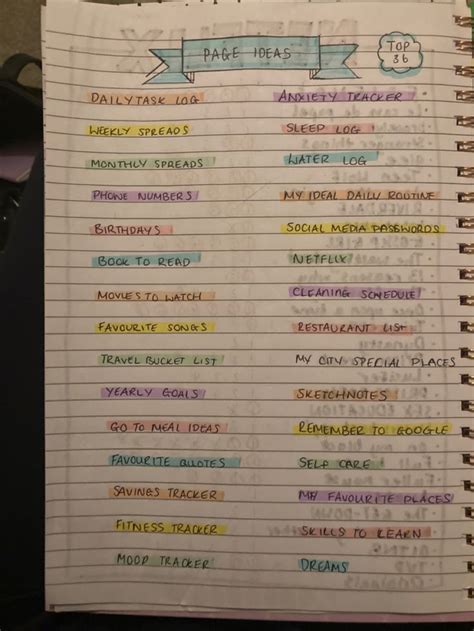 PAGE IDEAS
TOP
36
DAILY TASK LOG
WEEKLY SPREADS
MONTHLY SPREADS
PHONE NUMBERS
BIRTHDAYS
BOOK TO READ
MOVIES TO WATCH
FAVOURITE SONGS
TRAVEL BUCKET LIST
YEARLY GOALS
GO TO MEAL IDEAS
FAVOURITE QUOTES
SAVINGS TRACKER
FITNESS TRACKER
MOOD TRACKER
ANXIETY TRACKER
SLEEP LOG
WATER LOG
MY IDEAL DAILY ROUTINE
SOCIAL MEDIA PASSWORDS
NETFLIX
CLEANING SCHEDULE
RESTAURANT LIST
MY CITY SPECIAL PLACES
SKETCHNOTES
REMEMBER TO GOOGLE
SELF CARE
MY FAVOURITE PLACES
SKILLS TO LEARN
DREAMS